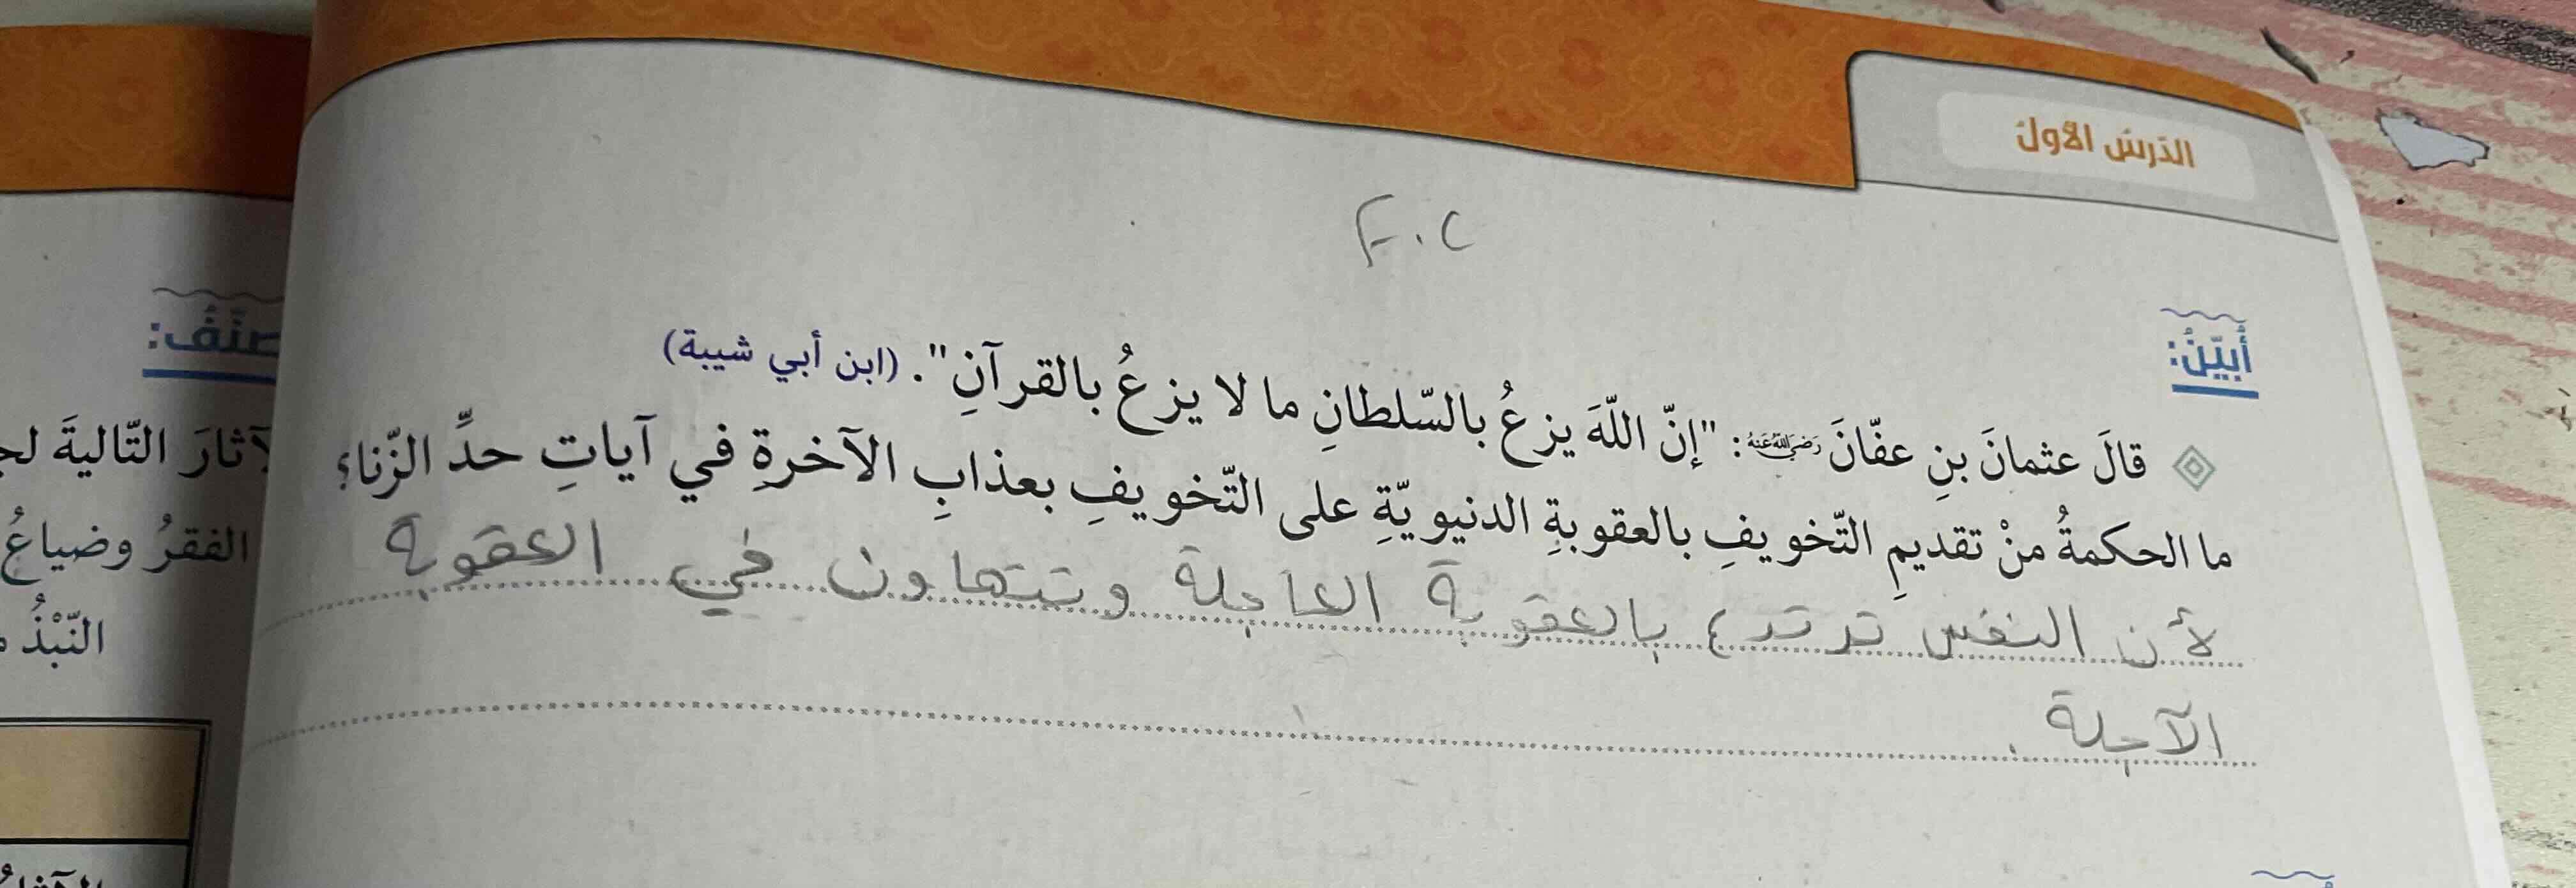 الدّرسُ الأولُ
F.C
أُبيّنُ:
قالَ عثمانَ بنِ عفّانَ رَضِيَ اللَّهُ عَنْهُ: "إنّ اللّهَ يزعُ بالسّلطانِ ما لا يزعُ بالقرآنِ". (ابن أبي شيبة)
ما الحكمةُ منْ تقديمِ التّخويفِ بالعقوبةِ الدنيويّةِ على التّخويفِ بعذابِ الآخرةِ في آياتِ حدِّ الزّنا؟
لأن النفس ترتدع بالعقوبة العاجلة وتتهاون في العقوبة
الآجلة.
صنّفُ:
لآثارَ التّاليةَ
الفقرُ وضياعُ
النّبْذُ